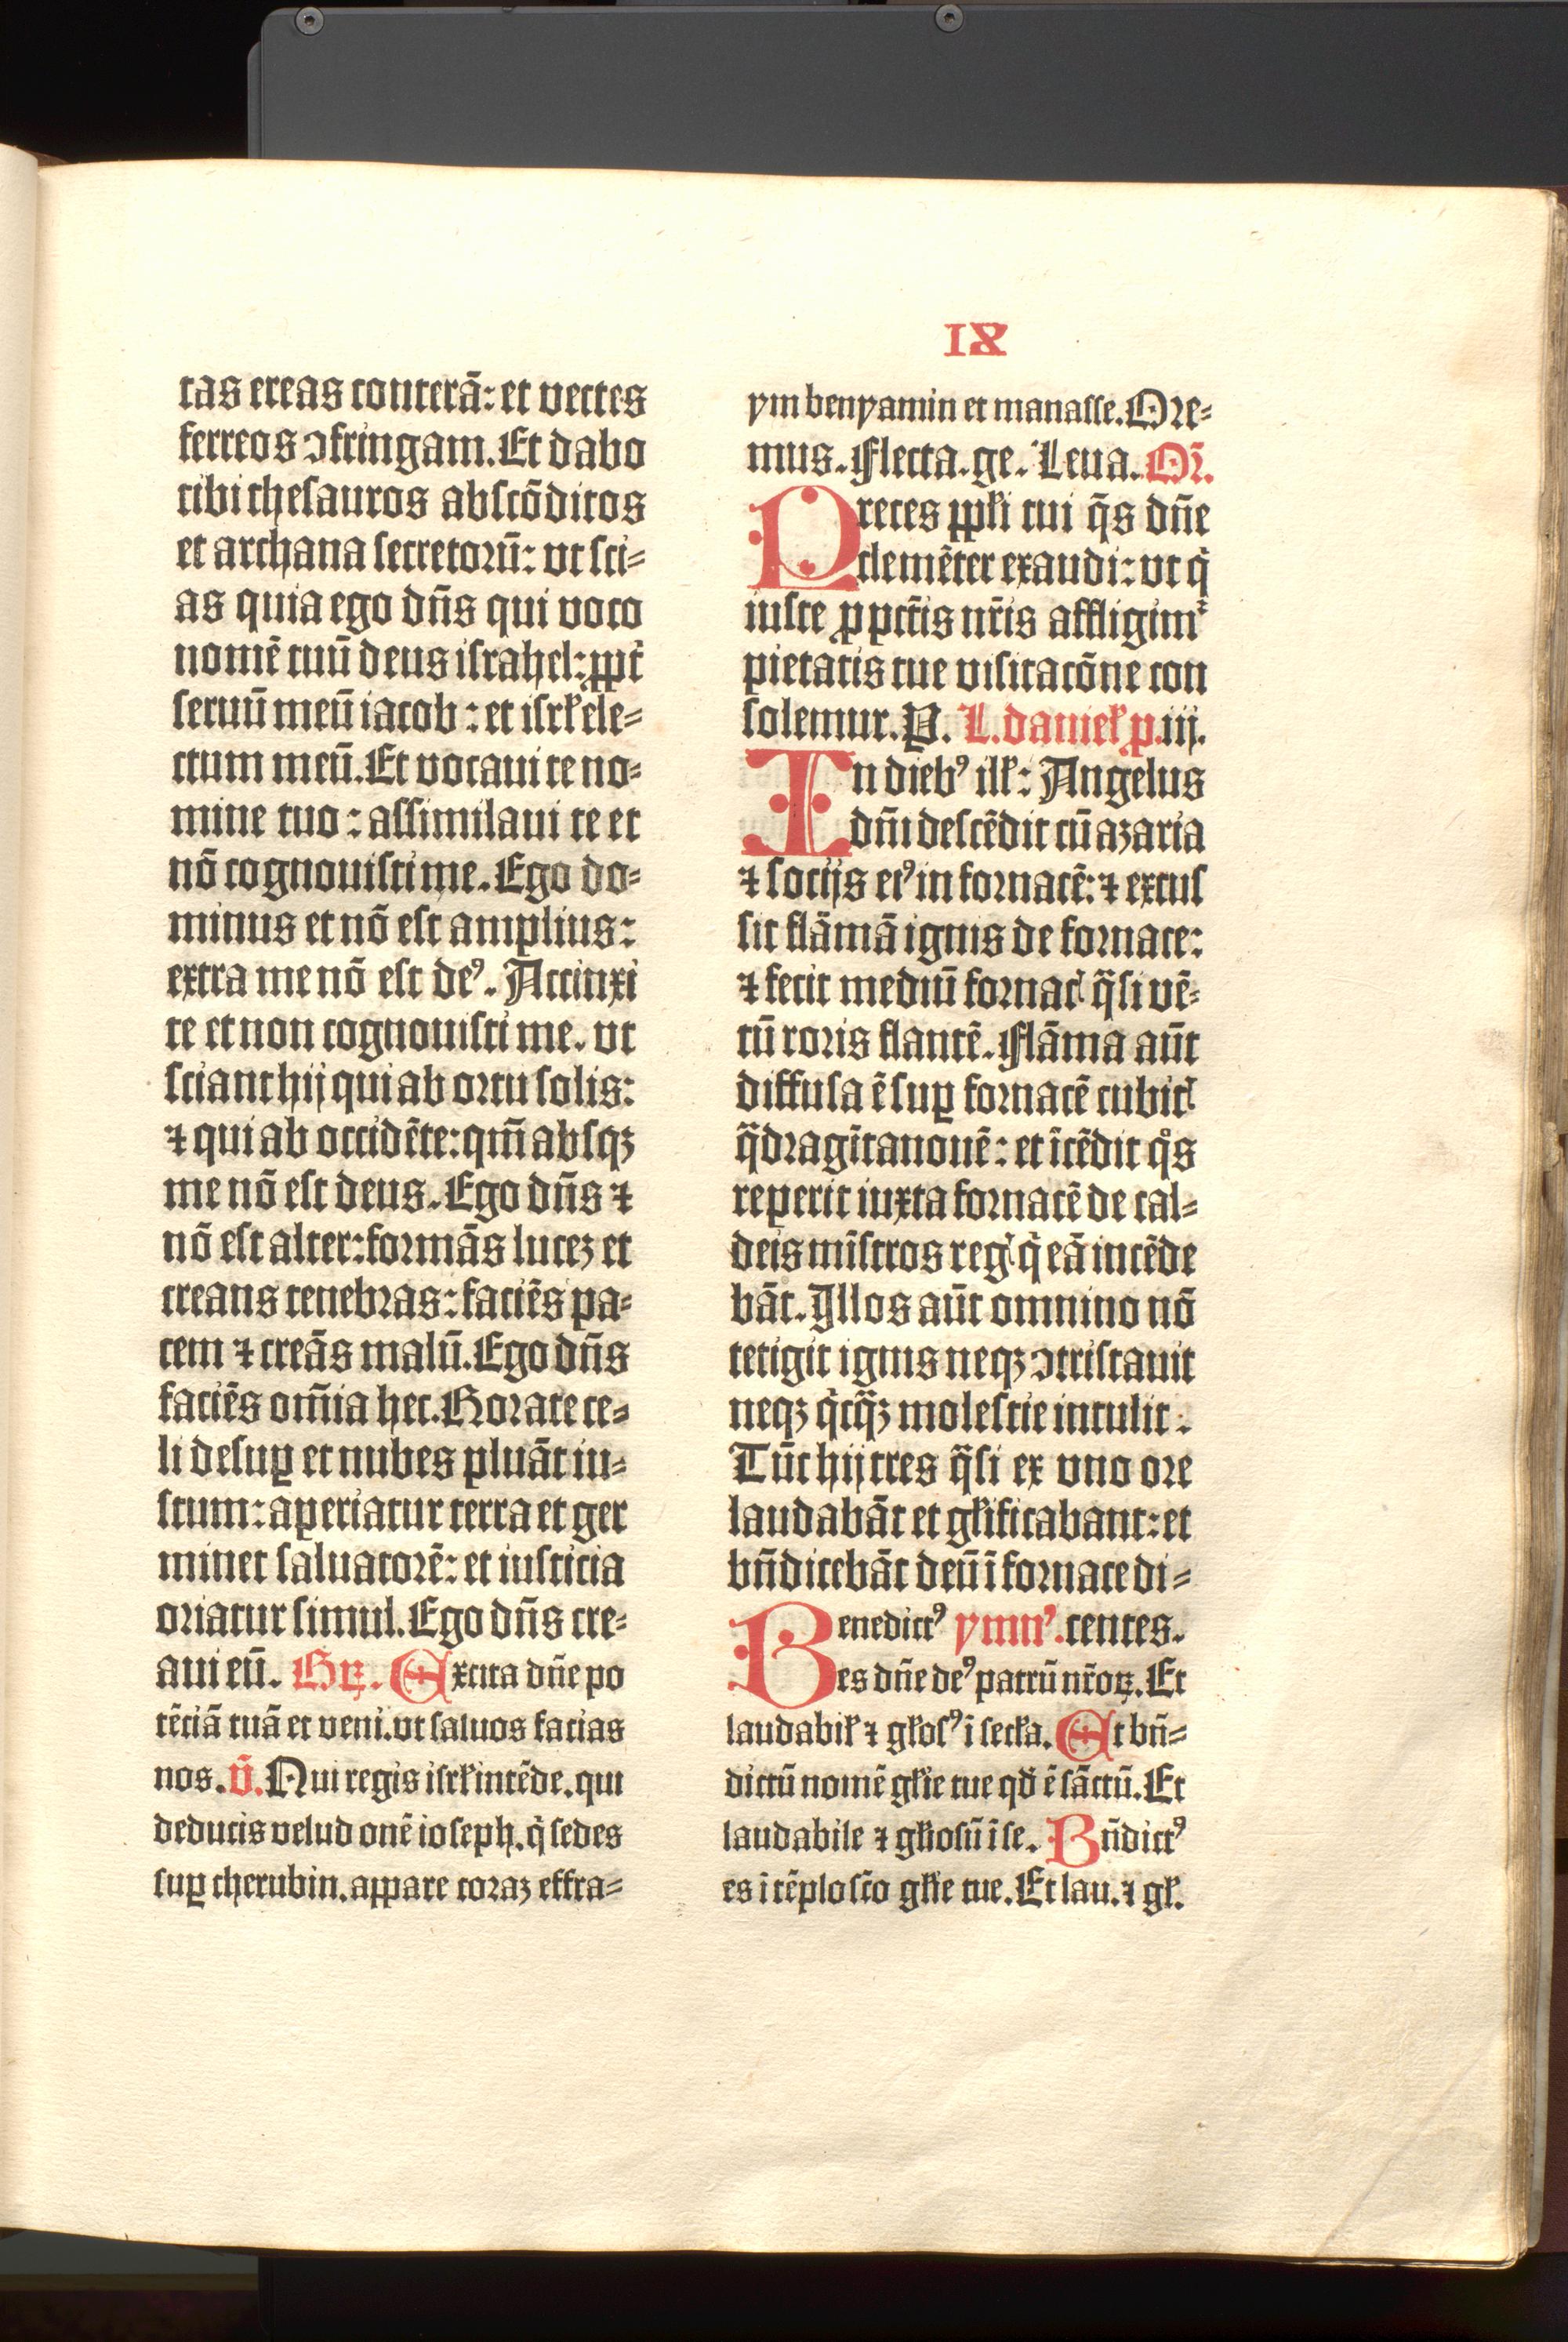 IX
tas ereas conterā: et vectes
ferreos ꝯfringam. Et dabo
tibi thesauros abscōditos
et archana secretorū: vt sci⸗
as quia ego dn̄s qui voco
nomē tuū deus israhel: ꝓpt̄
seruū meū iacob: et isrł ele⸗
ctum meū. Et vocaui te no⸗
mine tuo: assimilaui te et
nō cognouisti me. Ego do⸗
minus et nō est amplius:
extra me nō est deꝰ. Accinxi
te et non cognouisti me. vt
sciant hij qui ab ortu solis:
⁊ qui ab occidēte: qm̄ absqꝫ
me nō est deus. Ego dn̄s ⁊
nō est alter: formās lucez et
creans tenebras: faciēs pa⸗
cem ⁊ creās malū. Ego dn̄s
faciēs om̄ia hec. Rorate ce⸗
li desuꝑ et nubes pluāt iu⸗
stum: aperiatur terra et ger
minet saluatorē: et iusticia
oriatur simul. Ego dn̄s cre⸗
aui eū. Gꝝ. Excita dn̄e po
tēciā tuā et veni. vt saluos facias
nos. v̄. Qui regis isrł intēde. qui
deducis velud onē ioseph. q̇ sedes
suꝑ cherubin. appare coraz effra⸗
ym benyamin et manasse. Ore⸗
mus. Flecta. ge. Leua. Or̄.
Preces ppłi tui q̄s dn̄e
clemēter exaudi: vt q̇
iuste ꝓ pctīs nr̄is affligimᷣ
pietatis tue visitacōne con
solemur. P. L. danieł p. iij.
In diebꝰ ilł: Angelus
dn̄i descēdit cū azaria
⁊ socijs eiꝰ in fornacē: ⁊ excus
sit flāmā ignis de fornace:
⁊ fecit mediū fornacꝭ q̄si vē⸗
tū roris flantē. Flāma aūt
diffusa ē suꝑ fornacē cubitꝭ
q̄dragītanouē: et īcēdit q̊s
reperit iuxta fornacē de cal⸗
deis mīstros regꝭ q̇ eā incēde
bāt. Illos aūt omnino nō
tetigit ignis neqꝫ ꝯtristauit
neqꝫ q̇cq̄ꝫ molestie intulit.
Tūc hij tres q̄si ex vno ore
laudabāt et głificabant: et
bn̄dicebāt deū ī fornace di⸗
Benedictꝰ ymnꝰ. centes.
es dn̄e deꝰ patrū nr̄oꝝ. Et
laudabił ⁊ głosꝰ ī secła. Et bn̄⸗
dictū nomē głie tue qđ ē sāctū. Et
laudabile ⁊ głiosū ī se. Bn̄dictꝰ
es ī tēplo scō głie tue. Et lau. ⁊ gł.